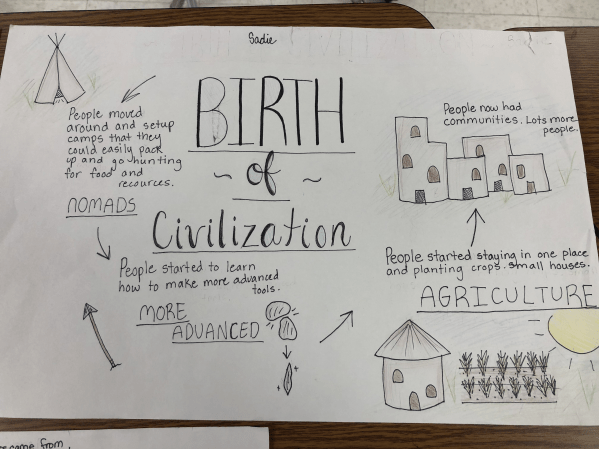 Sadie
BIRTH
~ of ~
Civilization
People moved
around and setup
camps that they
could easily pack
up and go hunting
for food and
recources.
NOMADS
People started to learn
how to make more advanced
tools.
MORE
ADVANCED
People now had
communities. Lots more
people.
People started staying in one place
and planting crops. small houses.
AGRICULTURE
came from